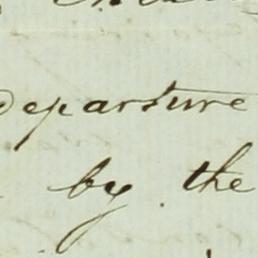 departure
by the